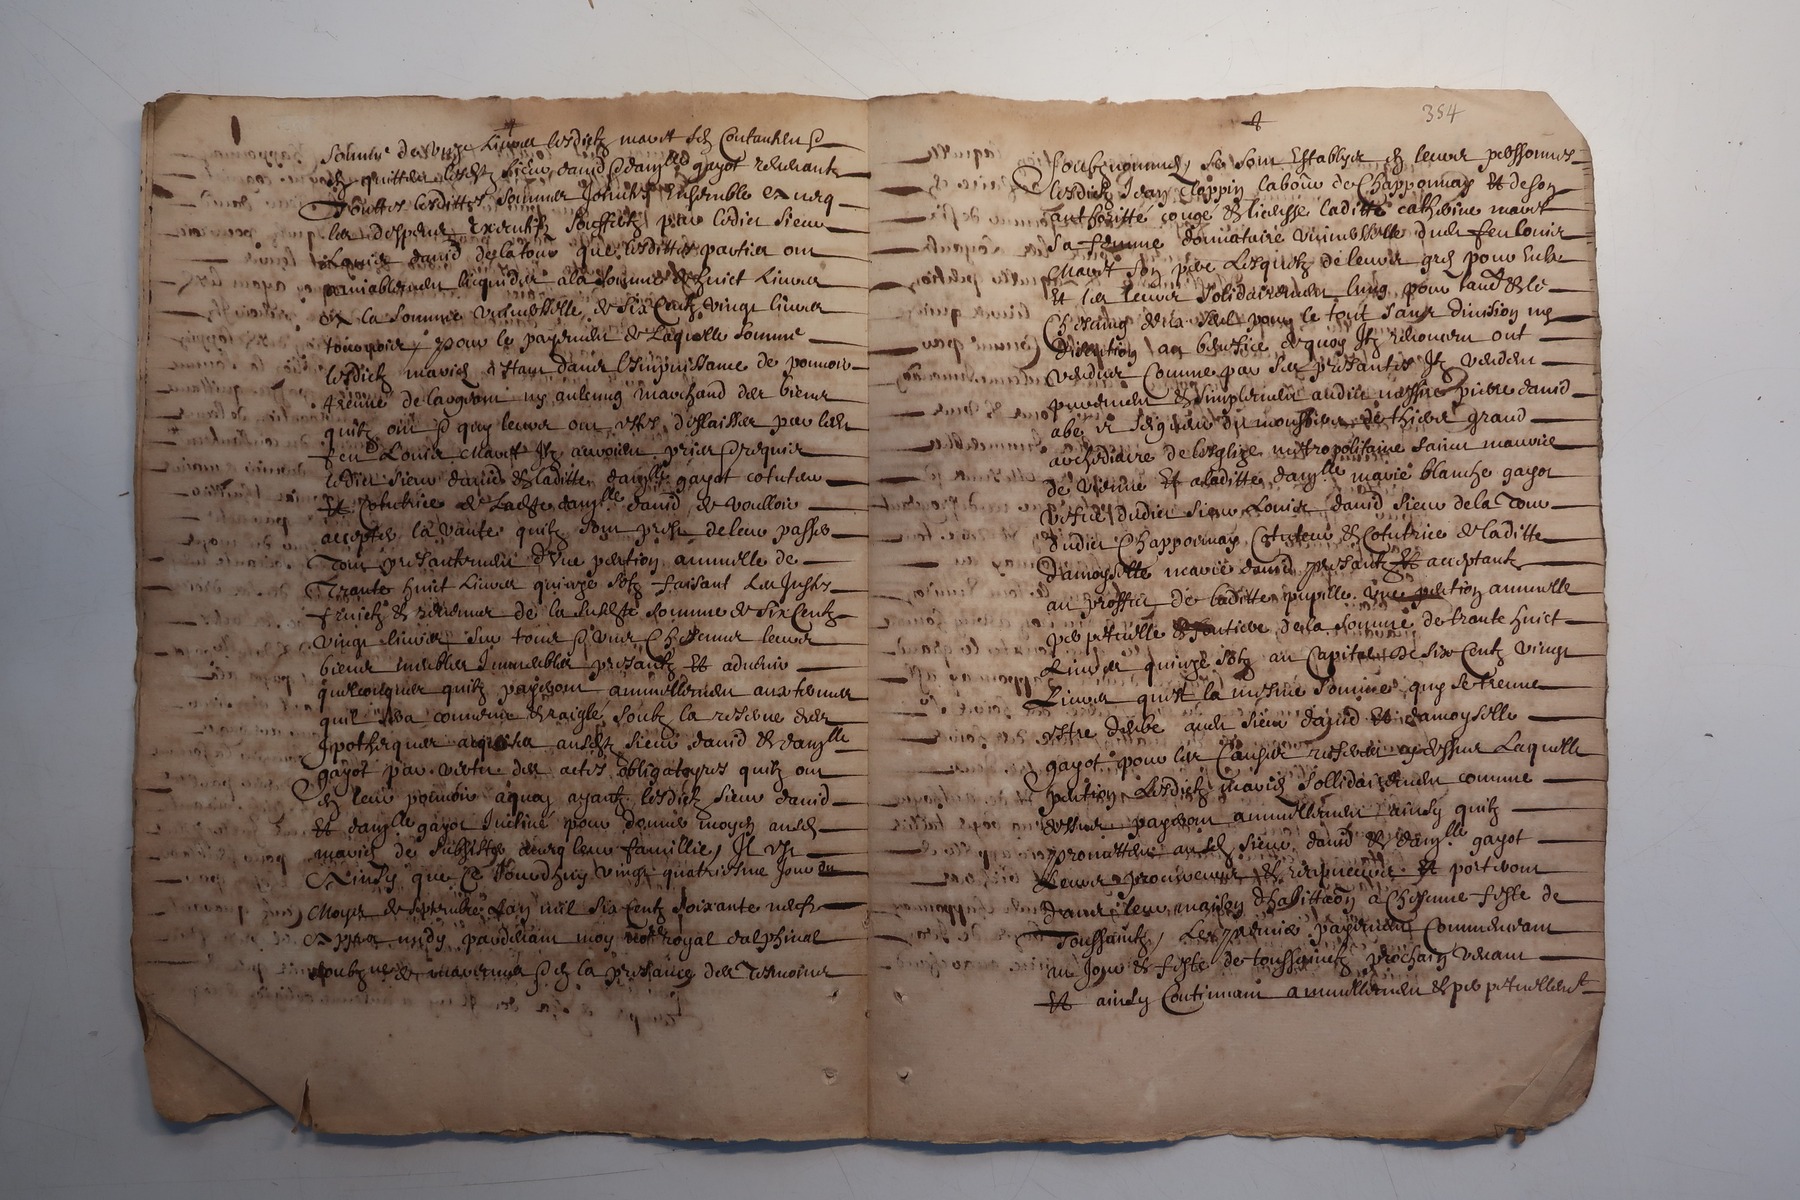 somme de unze Livres lesdictz mariés en contantent &
en quittent lesdictz Sieur david & dam.lle gayot revenantz
Touttes lesdittes sommes Joinctes Ensemble avecq
les despens Exécutifz souffertz par ledict Sieur
Louis david de la tour que lesdittes parties ont
amiablement liquidés a la somme de huict Livres
a la somme universelle de six Centz vingt livres
pour le payement de Laquelle somme
lesdictz mariés estant dans l'impuissance de pouvoir
treuver de l'argent ny aulcung marchand des biens
quilz ont & quy leurs ont estés dellaissés par ledit
feu Louis Mavet Ilz auroient priés & requis
ledict Sieur david & laditte dam.lle gayot cotuteur
Et Cotutrice de Ladite dam.lle david de voulloir
accepter la vante quilz sont prestz de leur passer
Tout presentement d'une pention annuelle de
Trante huict Livres quinze solz faisant Les Justes
fruictz & revenus de la susdite somme de six Centz
vingt livres sur tous & uns Chescuns leurs
biens meubles Immeubles presantz Et advenir
quelconques quilz payeront annuellement aux termes
quil sera convenu & reiglé soubz la reserve des
Ipotheques acquises ausdictz Sieur david & dam.lle
gayot par vertu des actes obligatoyres quilz ont
en leur pouvoir aquoy ayant lesdictz Sieur david
Et dam.lle gayot Incliné pour donner moyen ausdictz
mariés de subsister avecq leur famillie, Il est
Ainsy que Ce Jourdhuy vingt quatriesme Jour du
Moys de septembre l'an mil six Centz soixante neufz
Appres midy pardevant moy not.re royal dalphinal
soubzigné & en la presance des Tesmoins
354
soubznommés, se sont Establys en leurs perssonnes
lesdictz Jean Tappin labour. de Chapponnay Et de son
authoritté congé & licensse laditte catherine mavet
sa femme donnataire universselle dudit feu louis
Mavet son pere Lesquelz de leurs grés pour Eulx
Et les leurs solidairement lung pour laud.t &le
Chescung deux seul pour le tout sans division ny
discution au beneffice dequoy Ilz renoncent ont
vendus Comme par ses presantes Ilz vendent
purement & simplement audict messire pierre david
abé & seigneur du grand
archediacre de lesglize mettropolitaine sainct maurice
de vienne Et a laditte dam.lle marie blanche gayot
vefve dudict sieur Louis david sieur de la Tour
dudict Chapponnay Cotuteur & Cotutrice de laditte
damoyselle marie david presantz Et acceptantz
au proffict de laditte pupille une pention annuelle
perpetuelle & fontiere de la somme de trante huict
Livres quinze solz au Capital de six Centz vingt
Livres quest la mesme somme quy se treuve
estre deube ausdictz sieur david Et damoyselle
gayot pour les Causes Laquelle
pention Lesdictz mariés sollidairement comme
dessus payeront annuellement ainsy quilz
promettent ausdictz sieur david & dam.lle gayot
Leurs procureurs & Et porteront
dans leur maison dhabittaon a Chescune feste de
Toussainctz, Le premier payement Commencant
au Jour & feste de toussainctz prochain venant
Et ainsy Continuant annuellement & perpetuellem.t